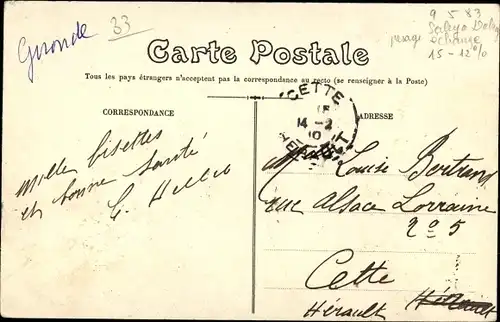 Gironde
33
9 5 83
échange
15-12%
Carte Postale
Tous les pays étrangers n'acceptent pas la correspondance au recto (se renseigner à la Poste)
CORRESPONDANCE
ADRESSE
CETTE
14-2
10
HERAULT
Mille bisettes
et bonne santé
Louise Bertrand
rue Alsace Lorraine
nº 5
Cette
Hérault